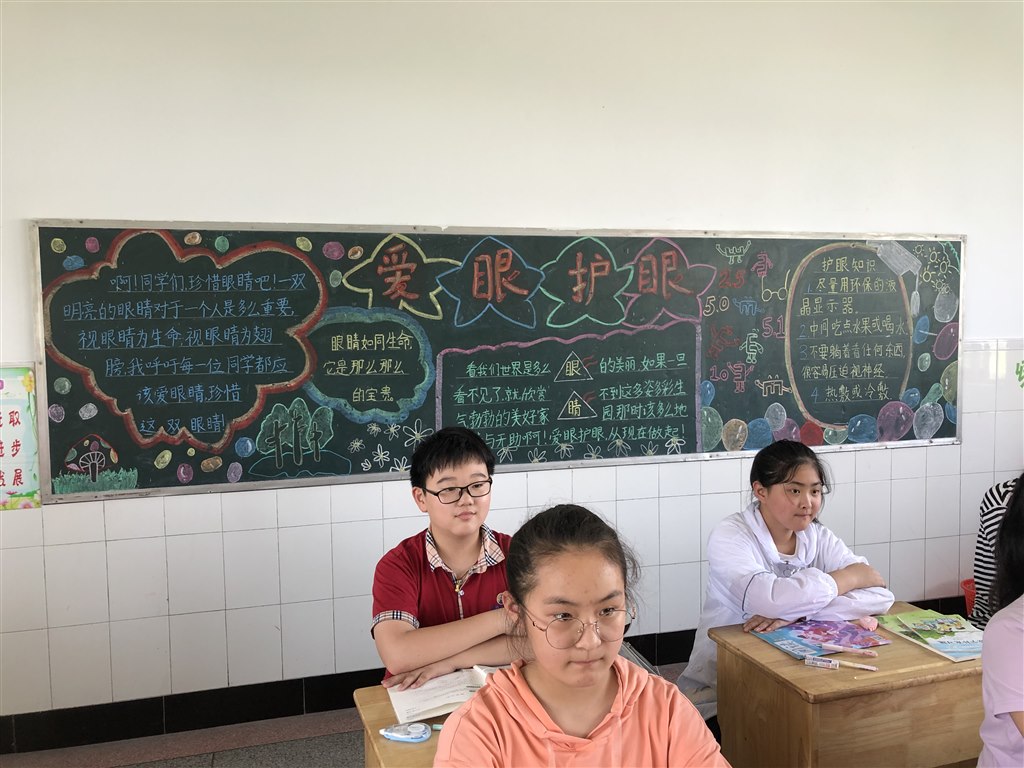 爱眼护眼
啊!同学们,珍惜眼睛吧!一双
明亮的眼睛对于一个人是多么重要,
视眼睛为生命,视眼睛为翅
膀,我呼吁每一位同学都应
该爱眼睛,珍惜
这双眼睛!
眼睛如同生命,
它是那么那么
的宝贵
看我们世界是多么
眼
的美丽,如果一旦
看不见了,就欣赏
不到这多姿多彩,生
气勃勃的美好家
睛
园,那时该多么地
与无助啊!爱眼护眼,从现在做起!
5.0
5.1
护眼知识
1.尽量用环保的液
晶显示器
2.中间吃点水果或喝水
3.不要躺着看任何东西,
很容易压迫视神经
4.热敷或冷敷
取
进步
展